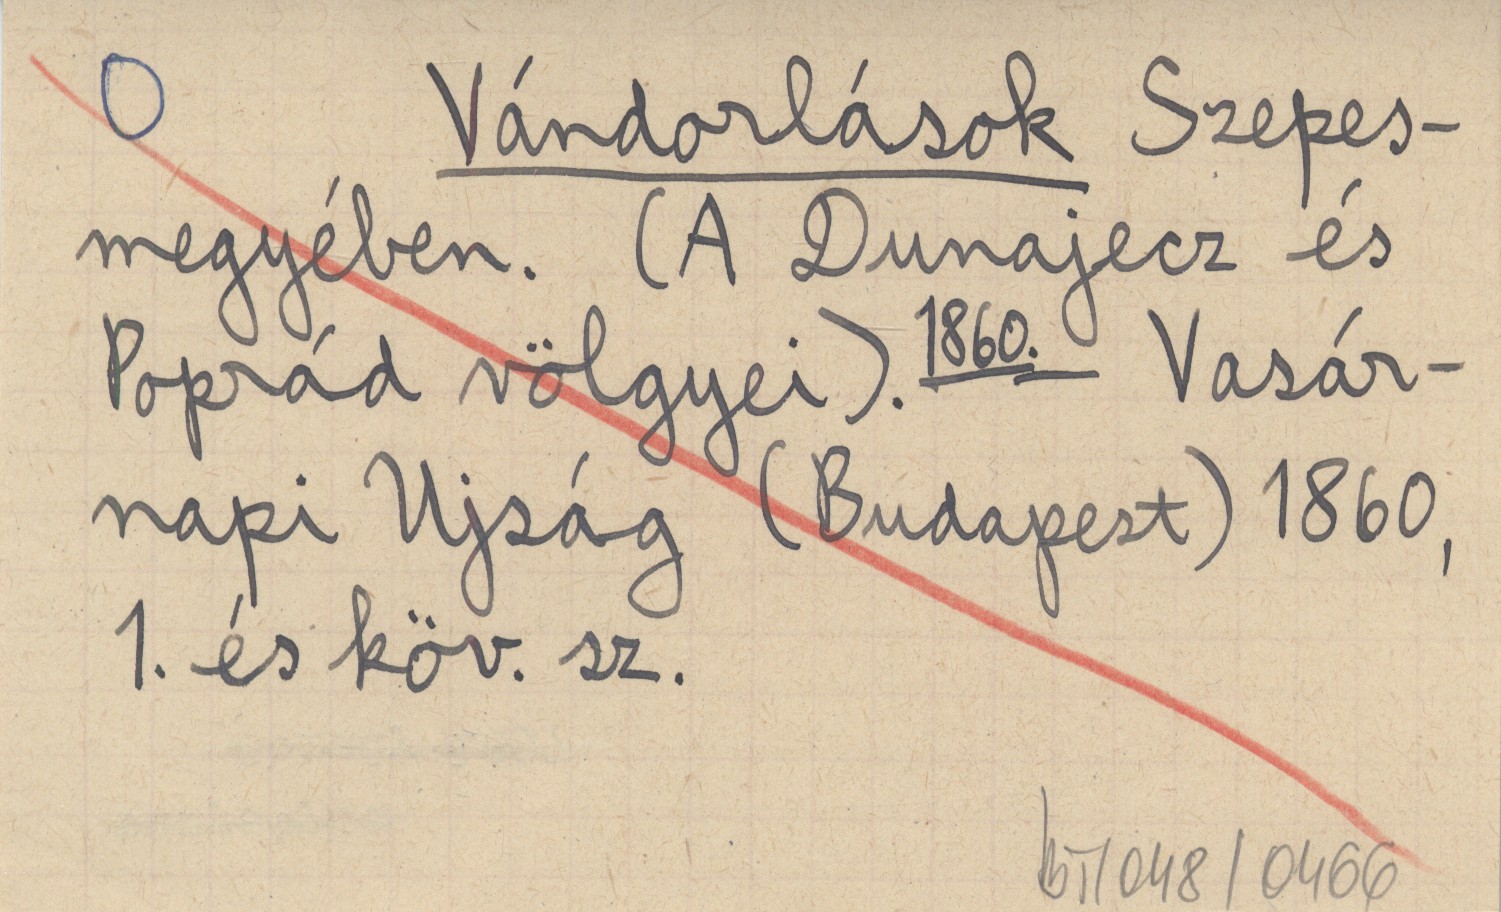 O Vándorlások Szepes-
megyében. (A Dunajecz és
Poprád völgyei). 1860. Vasár-
napi Ujság (Budapest) 1860,
1. és köv. sz.
/048/0466